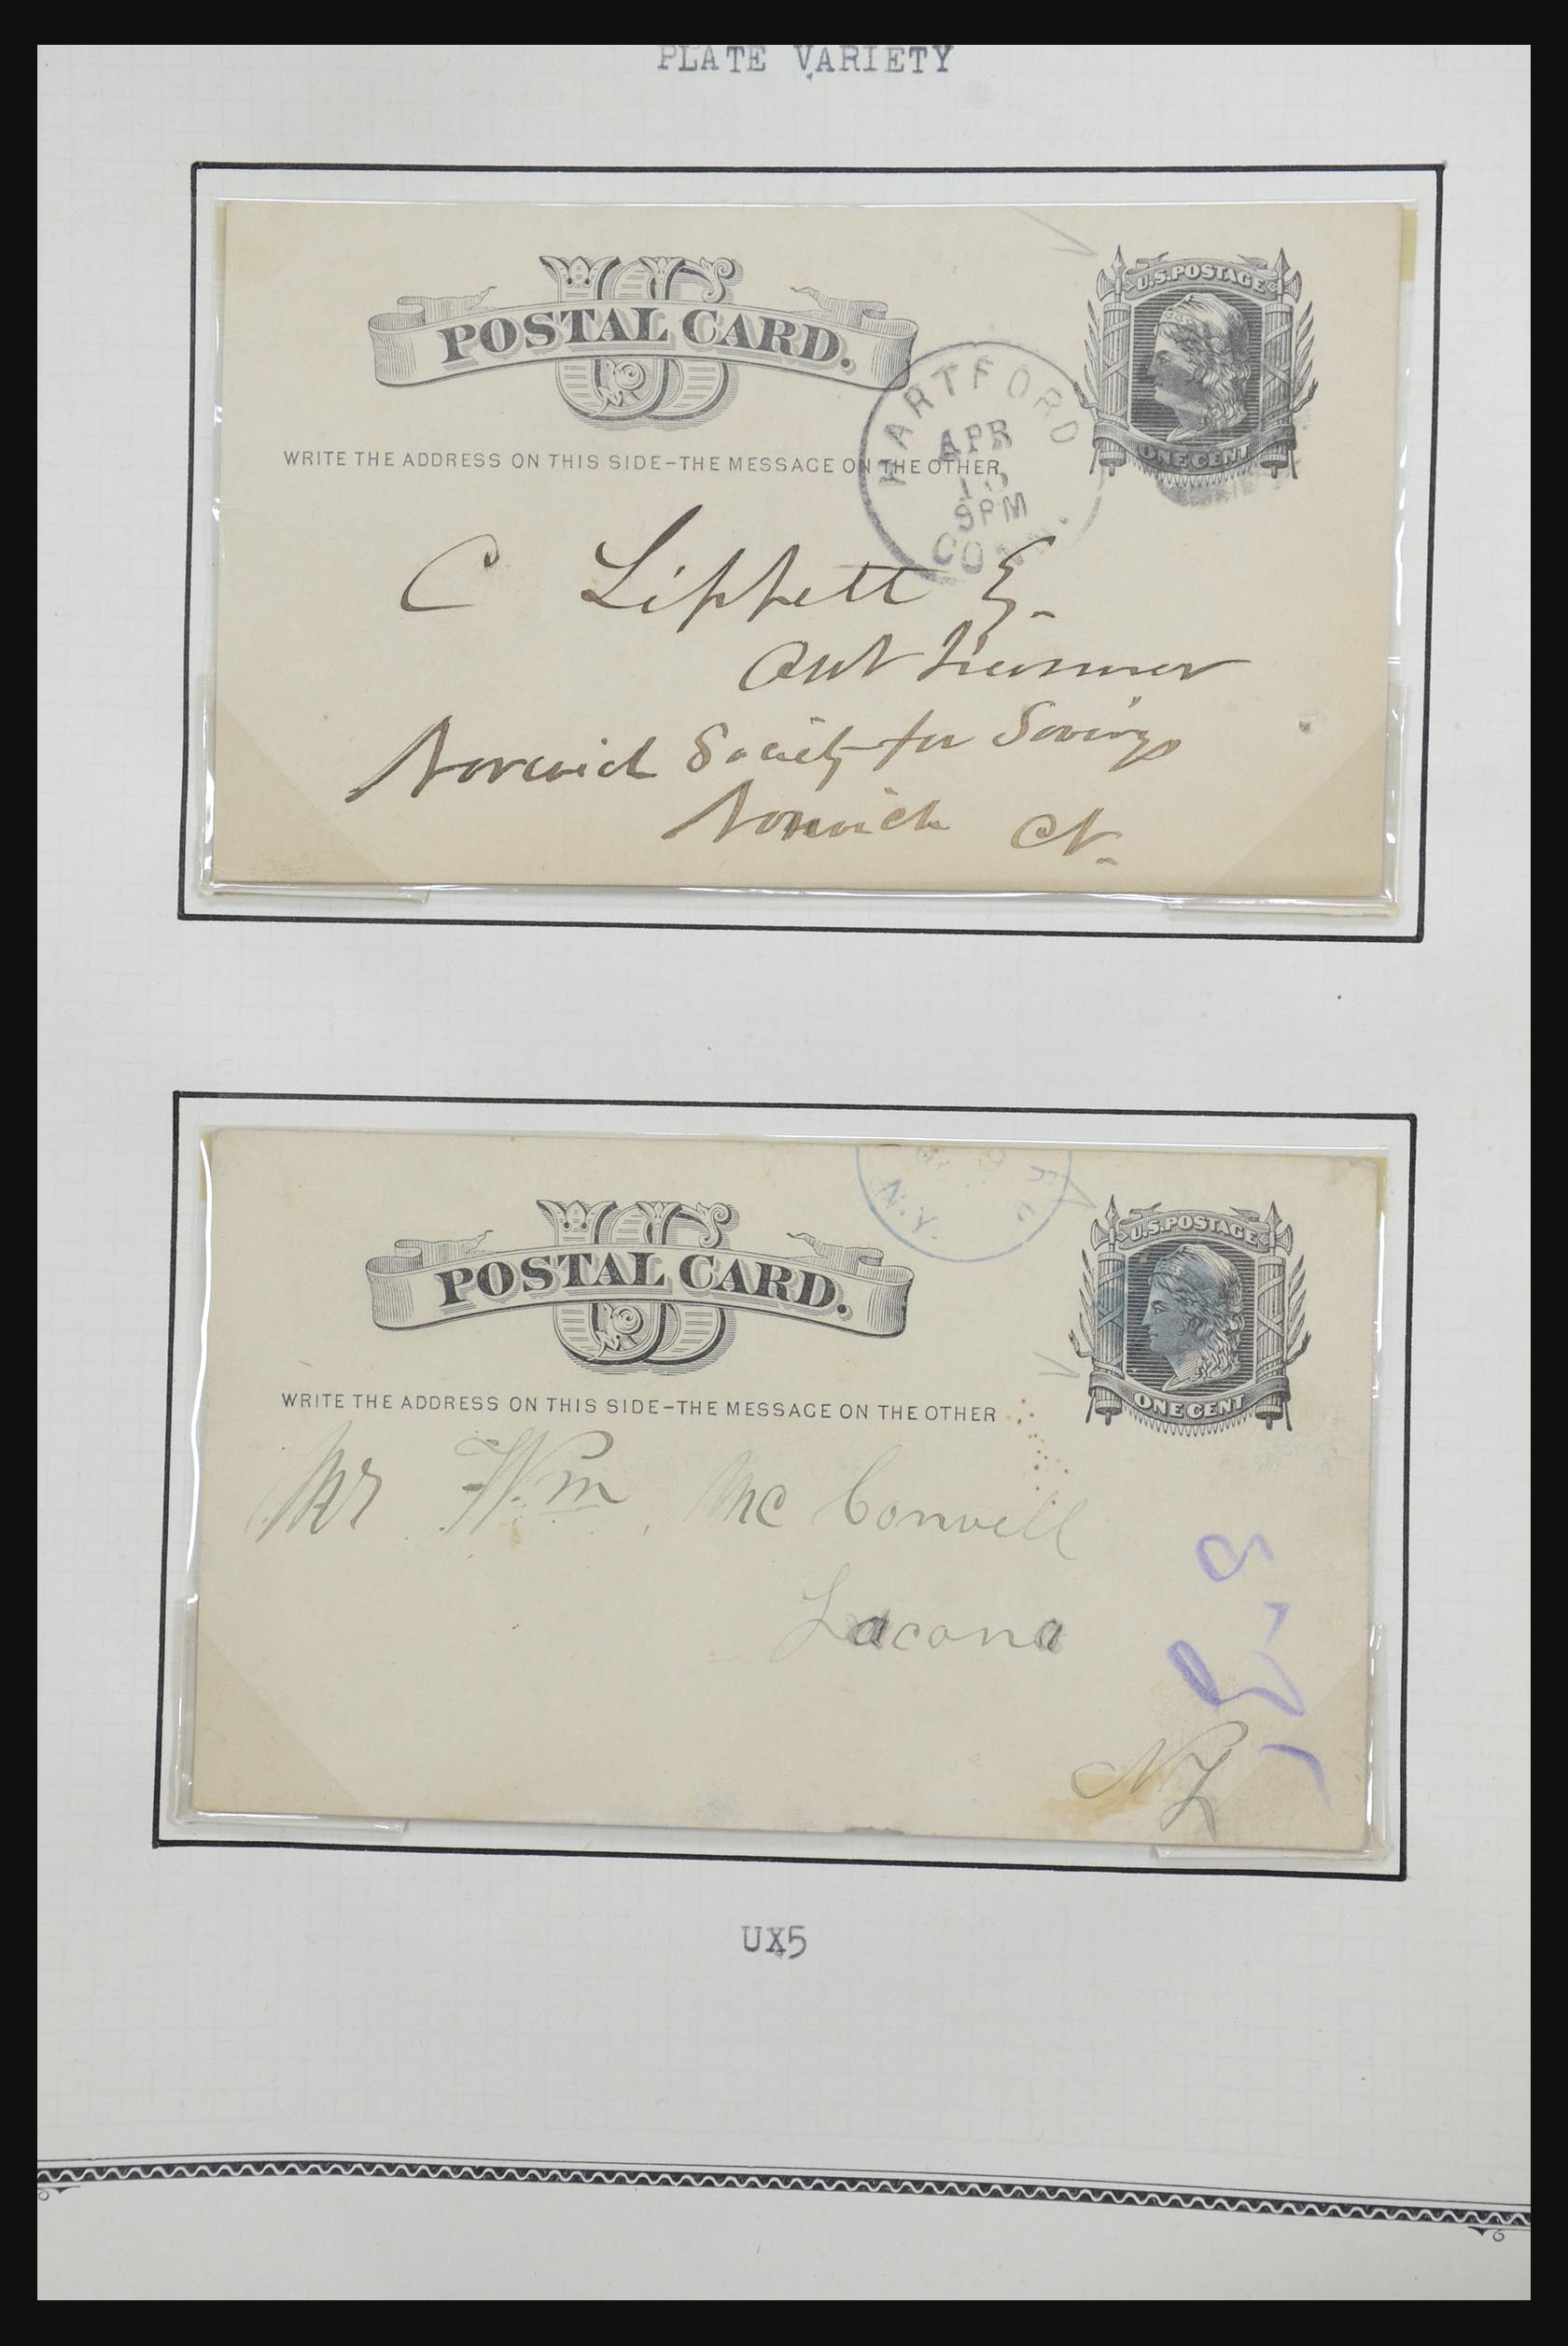 PLATE VARIETY
US
POSTAL CARD.
U.S. POSTAGE
ONE CENT
WRITE THE ADDRESS ON THIS SIDE–THE MESSAGE ON THE OTHER
HARTFORD
APR
8PM
CONN.
C Lippett
Norwich Society for Savings
Norwich Ct.
N.Y.
US
POSTAL CARD.
U.S. POSTAGE
ONE CENT
WRITE THE ADDRESS ON THIS SIDE–THE MESSAGE ON THE OTHER
Mr Wm. Mc Conwell
Lacona
NY
UX5